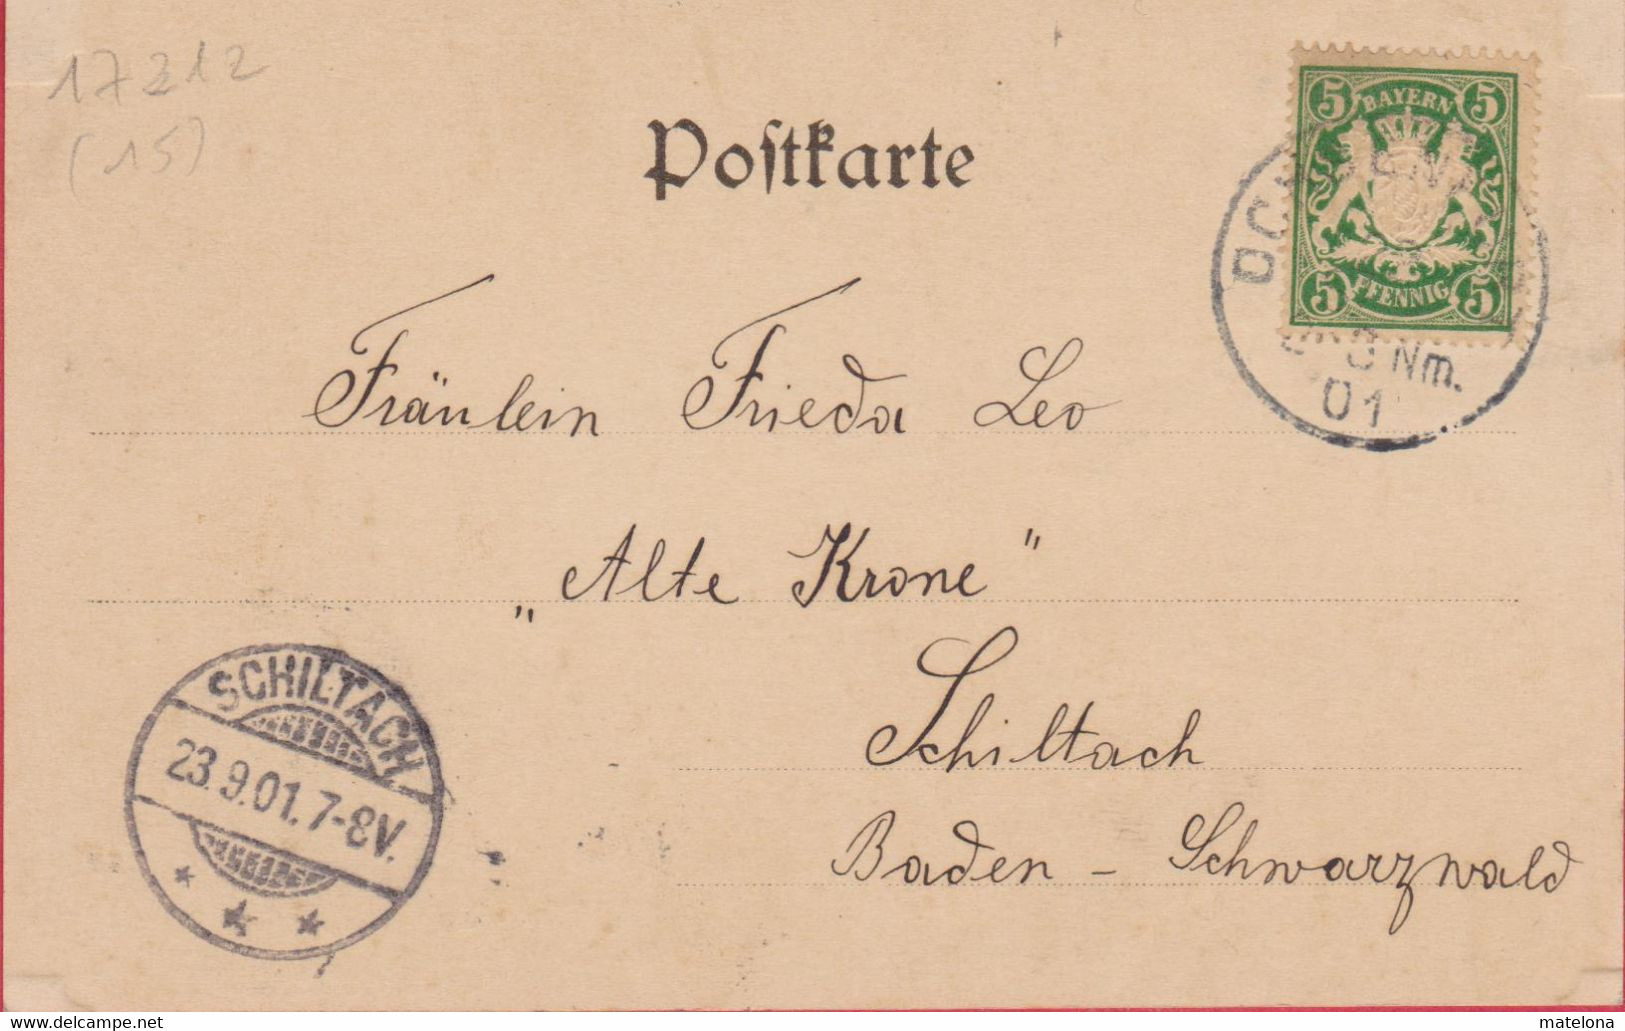 17212
(15)
Postkarte
5 BAYERN 5
5 PFENNIG 5
Nm.
01
Fräulein Frieda Leo
„Alte Krone"
Schiltach
Baden - Schwarzwald
SCHILTACH.
23.9.01.7-8V.
www.delcampe.net
matelona